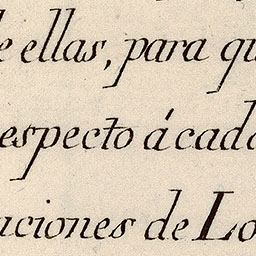 de ellas, para qu
especto á cada
aciones de Lo